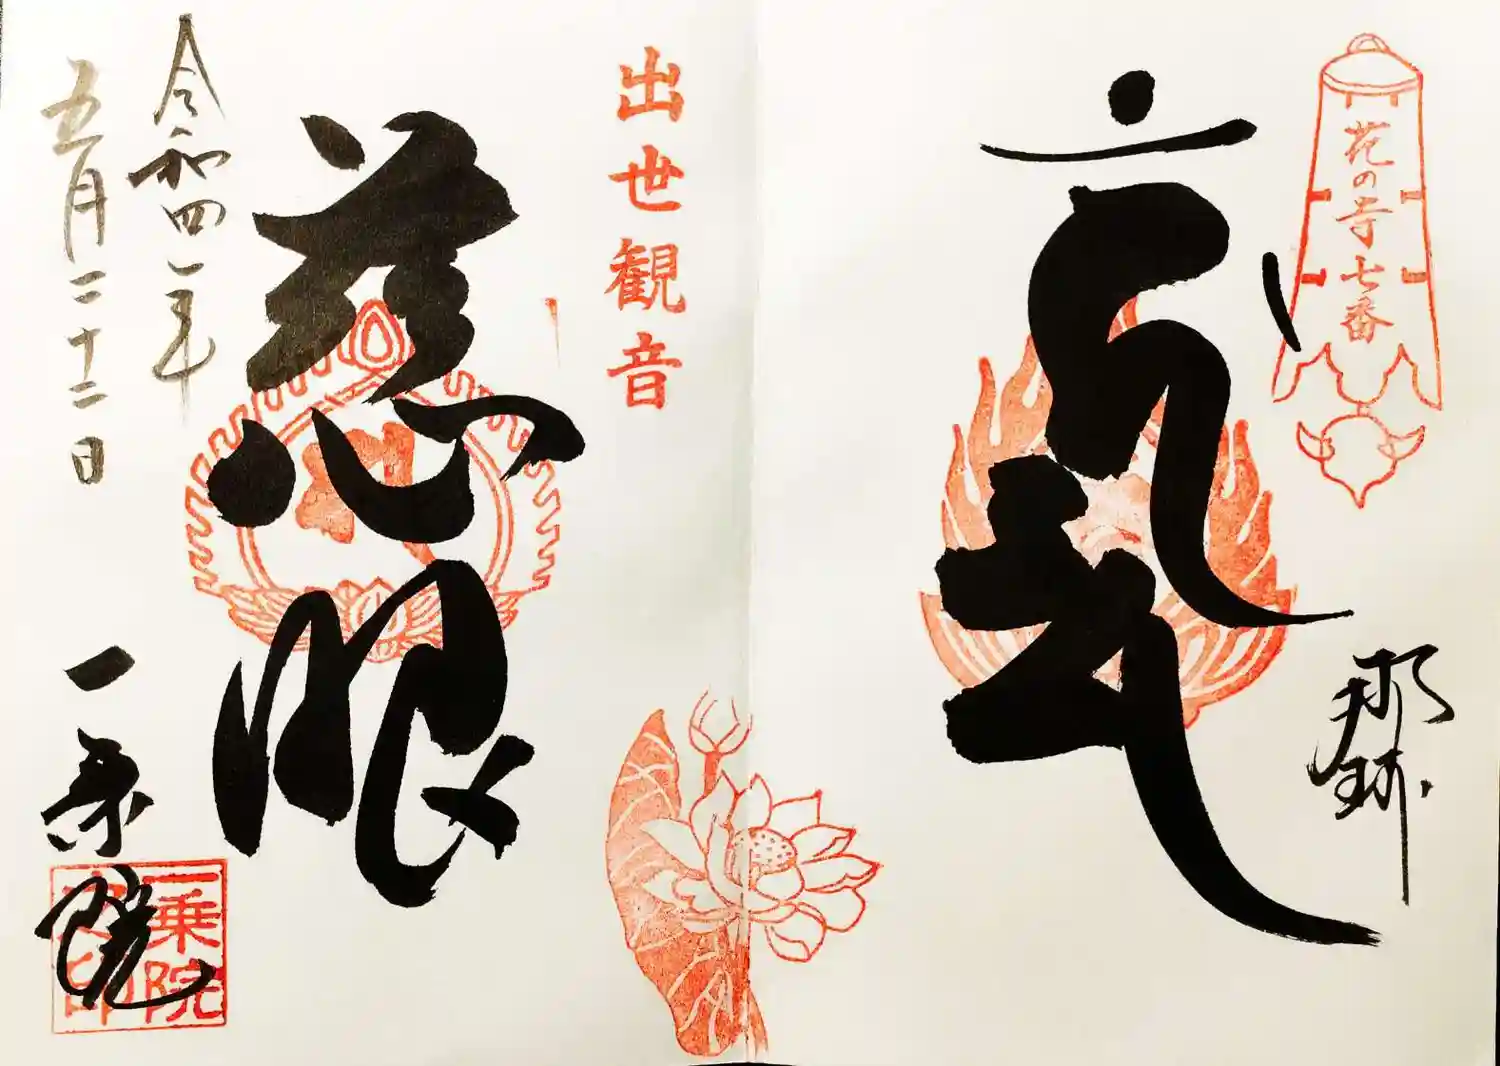 花の寺七番
那珂
出世観音
慈眼
令和四年
五月二十二日
一乗院
一乗院